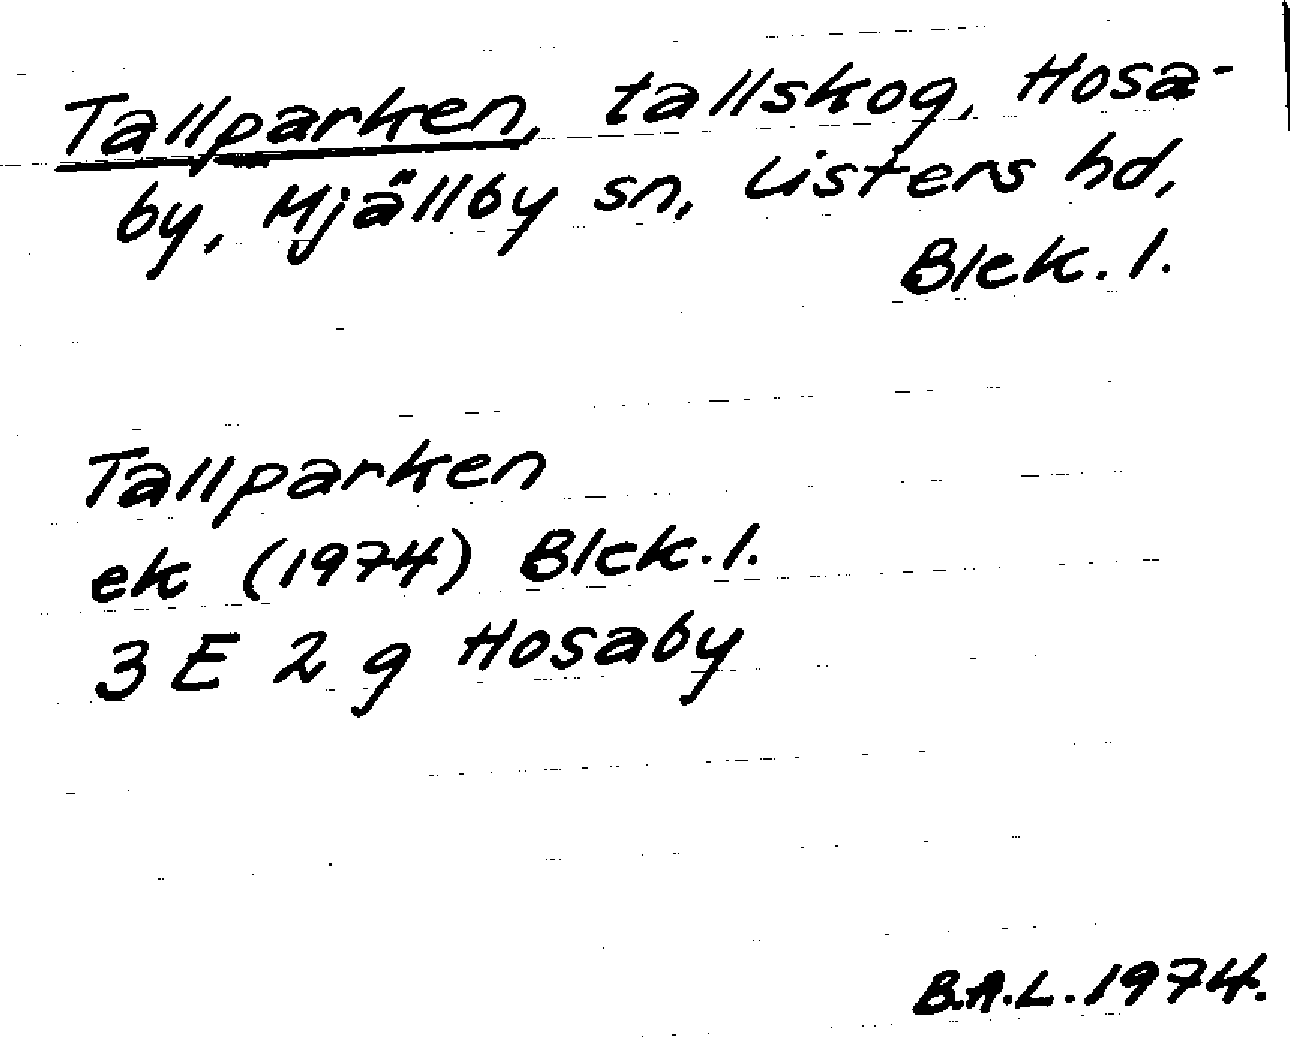 Tallparken, tallskog, Hosa-
by, Mjällby sn, Listers hd,
Blek. l.
Tallparken
ek (1974) Blek. l.
3 E 2 g Hosaby
B.A.L. 1974.